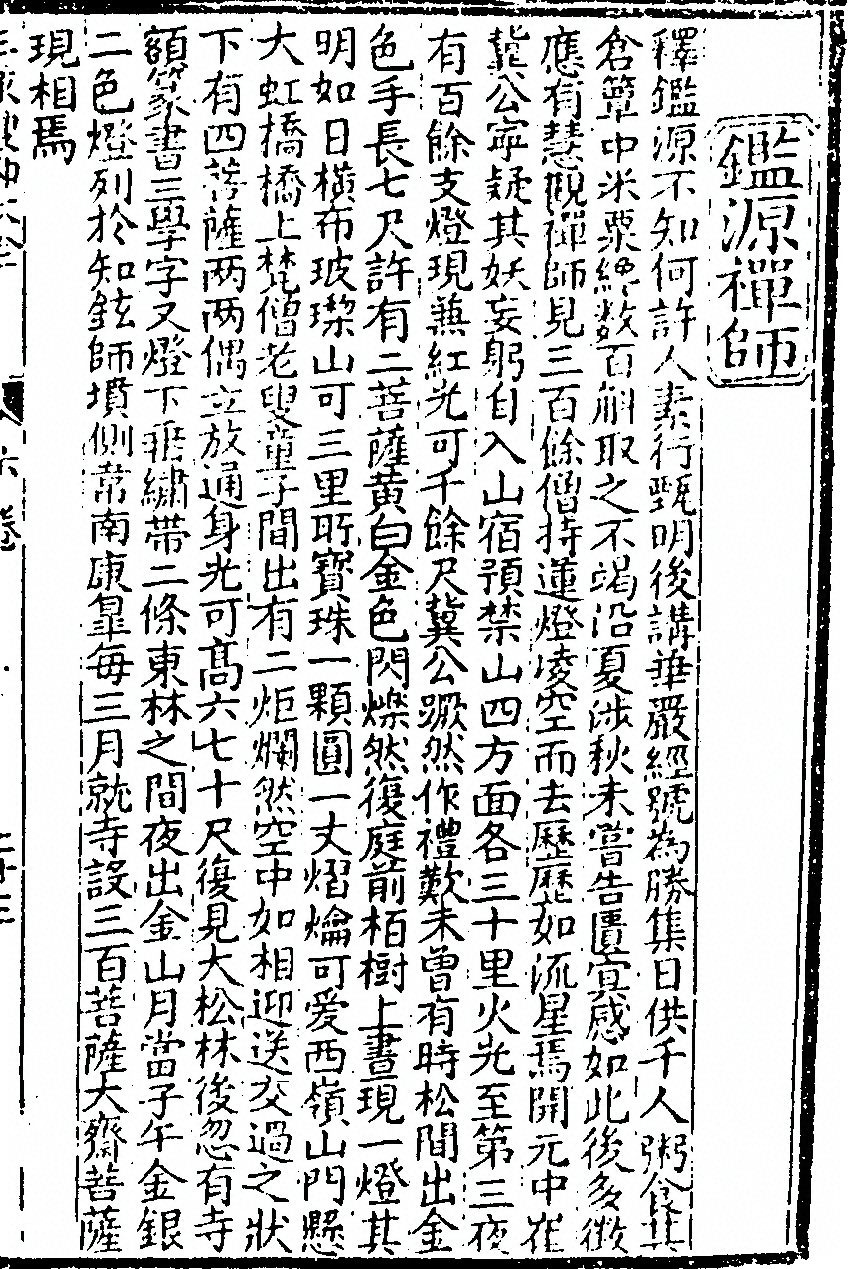 鑑源禪師
釋鑑源不知何許人素行甄明後講華嚴經號為勝集日供千人粥食其
倉簞中米粟終数百斛取之不竭沿夏涉秋未嘗告匱冥感如此後多徵
應有慧觀禪師見三百餘僧持蓮燈凌空而去歷歷如流星焉開元中崔
冀公寧疑其妖妄躬自入山宿預禁山四方面各三十里火光至第三夜
有百餘支燈現兼紅光可千餘尺冀公蹶然作禮歎未曾有時松間出金
色手長七尺許有二菩薩黄白金色閃爍然復庭前栢樹上晝現一燈其
明如日橫布玻瓈山可三里所寶珠一顆圓一丈熠爚可爱西嶺山門懸
大虹橋橋上梵僧老叟童子間出有二炬爛然空中如相迎送交過之狀
下有四菩薩两两偶立放通身光可髙六七十尺復見大松林後忽有寺
額篆書三學字又燈下垂繡帶二條東林之間夜出金山月當子午金銀
二色燈列於知鉉師墳側常南康皐每三月就寺設三百菩薩大齋菩薩
現相焉
六卷
二十三